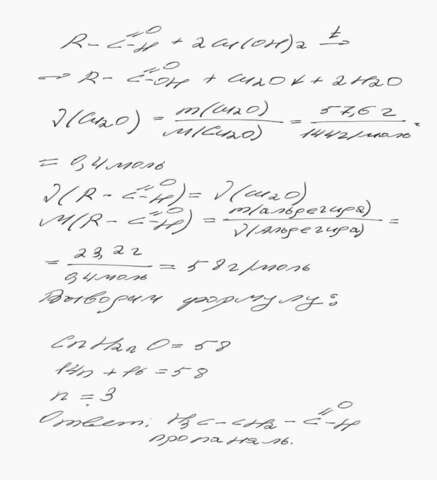 R – C =O –H + 2Cu(OH)2 t→
→ R – C =O –OH + Cu2O↓ + 2H2O
ν(Cu2O) = m(Cu2O) / M(Cu2O) = 57,6 г / 144 г/моль =
= 0,4 моль
ν(R – C =O –H) = ν(Cu2O)
M(R – C =O –H) = m(альдегида) / ν(альдегида) =
= 23,2 г / 0,4 моль = 58 г/моль
Выводим формулу:
CnH2nO = 58
14n + 16 = 58
n = 3
Ответ: H3C – CH2 – C =O –H
пропаналь.